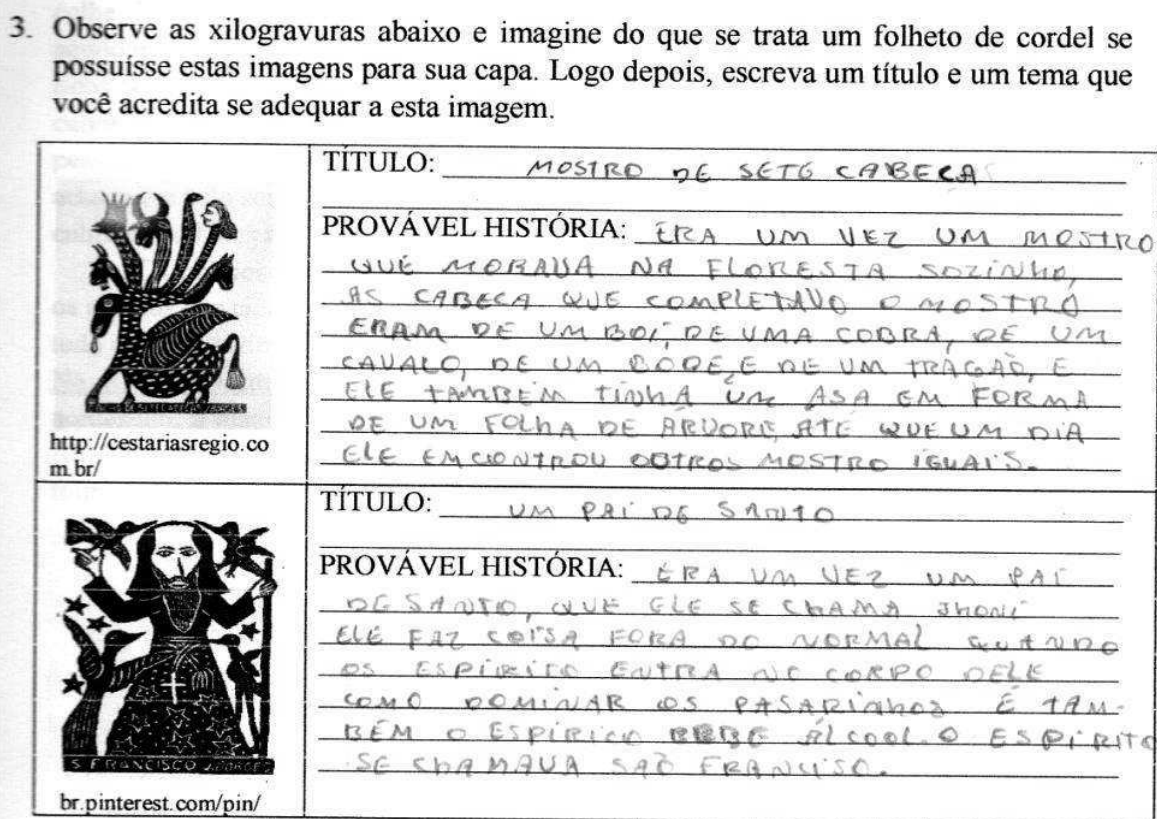 3. Observe as xilogravuras abaixo e imagine do que se trata um folheto de cordel se
possuísse estas imagens para sua capa. Logo depois, escreva um título e um tema que
você acredita se adequar a esta imagem.
TÍTULO: MOSTRO DE SETE CABECA
PROVÁVEL HISTÓRIA: ERA UM VEZ UM MOSTRO
QUE MORAVA NA FLORESTA SOZINHO,
AS CABECA QUE COMPLETAVO O MOSTRO
ERAM DE UM BOI, DE UMA COBRA, DE UM
CAVALO, DE UM BODE, E DE UM TRAGÃO, E
ELE TAMBEM TINHA UM ASA EM FORMA
DE UM FOLHA DE ARVORE, ATE QUE UM DIA
ELE EMCONTROU OUTROS MOSTRO IGUAIS.
http://cestariasregio.co
m.br/
TÍTULO: UM PAI DE SANTO
PROVÁVEL HISTÓRIA: ERA UM VEZ UM PAI
DE SANTO, QUE ELE SE CHAMA JHONI
ELE FAZ COISA FORA DO NORMAL QUANDO
OS ESPIRITO ENTRA NO CORPO DELE
COMO DOMINAR OS PASARINHOS E TAM-
BÉM O ESPIRITO BEBE ÁLCOOL. O ESPIRITO
SE CHAMAVA SAÕ FRANCISO.
S FRANCISCO J.BORGES
br.pinterest.com/pin/